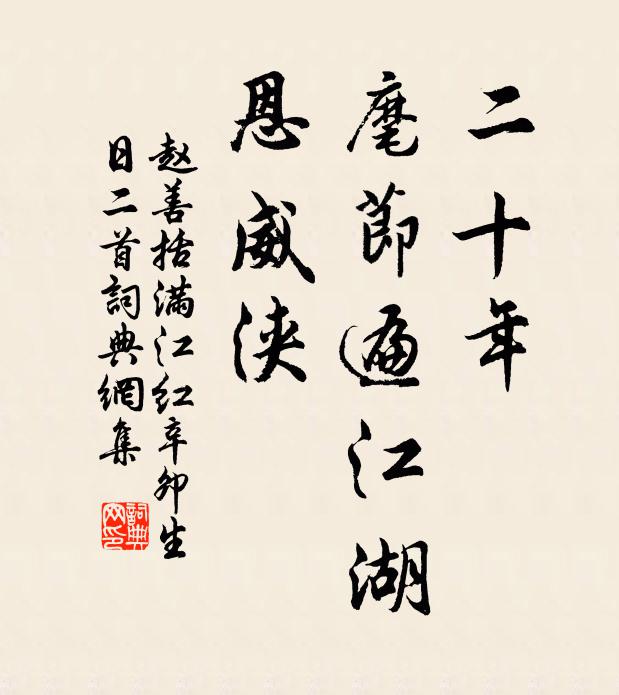 二十年
麾節遍江湖
恩威浹
赵善括满江红辛卯生
日二首詞典網集
詞典
网印